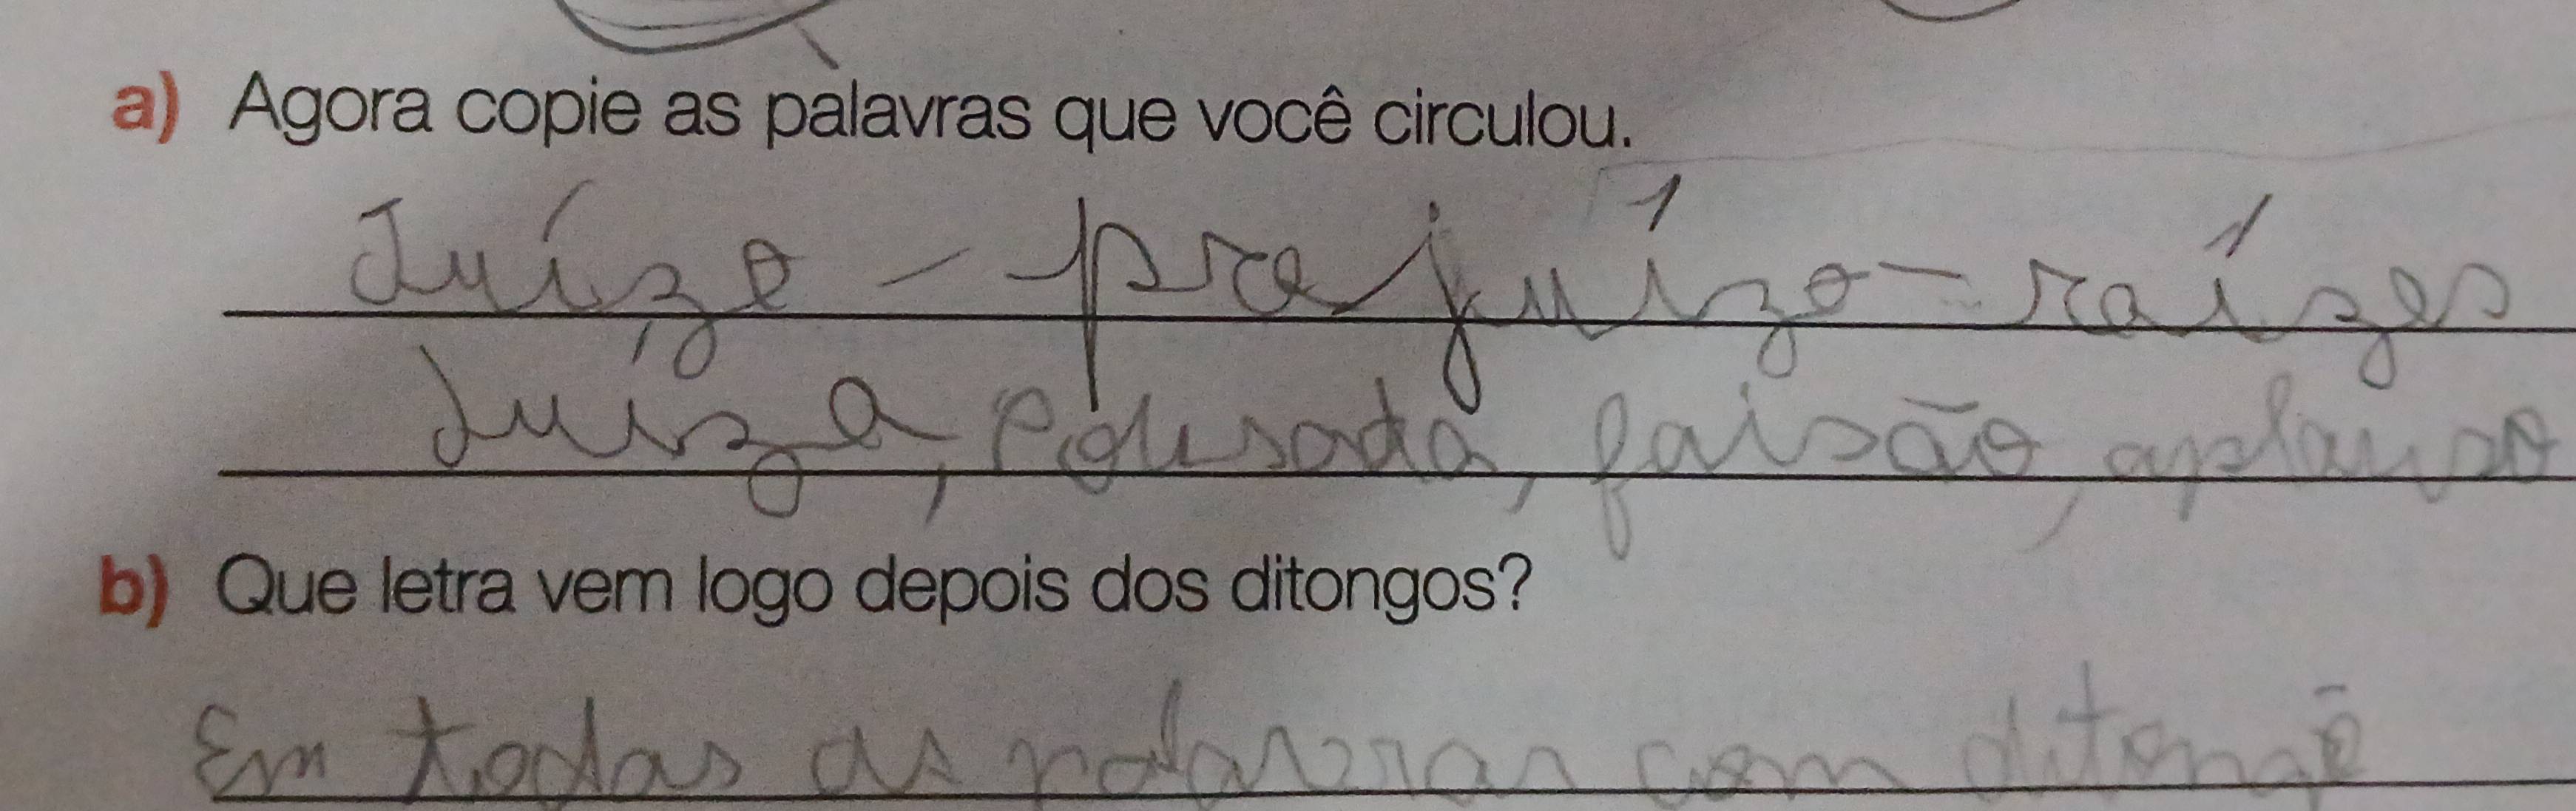 a) Agora copie as palavras que você circulou.
Juízo - prejuízo - raízes
Juíza, pousada, faisão, aplauso
b) Que letra vem logo depois dos ditongos?
Em todas as palavras com ditongo